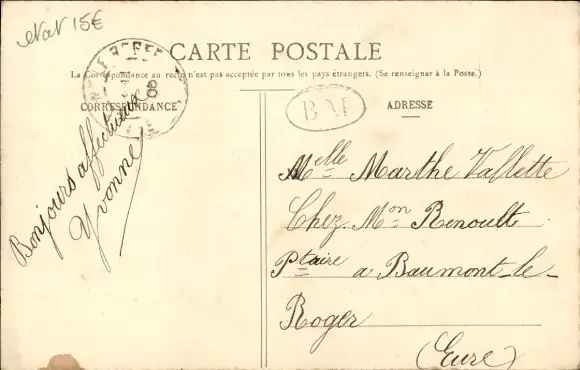 etat 15€
CARTE POSTALE
La Correspondance au recto n'est pas acceptée par tous les pays étrangers. (Se renseigner à la Poste.)
CORRESPONDANCE
BM
ADRESSE
Bonjours affectueux
Yvonne
Melle Marthe Vallette
Chez. Mon Renoult
Ptaire a Baumont-le-
Roger
(Eure)
08